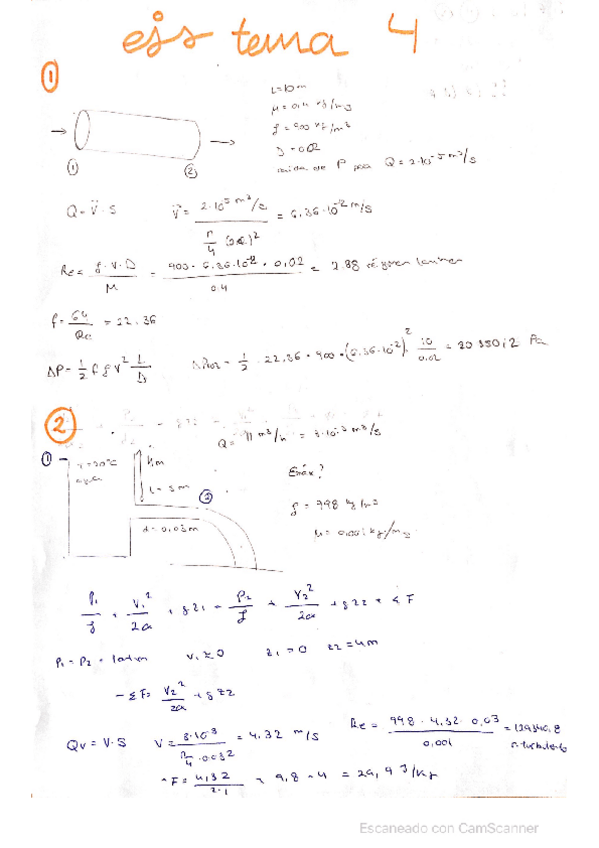 ejs tema 4
①
L=10m
μ = 0,4 kg/ms
ρ = 900 kg/m³
D = 0.02
caida de P para Q = 2·10⁻⁵ m³/s
① ②
Q = V̄ · S V̄ = 2·10⁻⁵ m³/s / π/4 (0.02)² = 6.36·10⁻² m/s
Re = ρ·V·D / μ = 900 · 6.36·10⁻² · 0,02 / 0.4 = 2.88 régimen laminar
f = 64 / Re = 22.36
ΔP = ½ f ρ V² L/D = ½ · 22,36 · 900 · (6.36·10⁻²)² · 10/0.02 = Pa
②
Q = 11 m³/h = 3·10⁻³ m³/s
① T = 20°C 4m
agua
L = 5m ②
d = 0.03m
Emáx?
ρ = 998 kg/m³
μ = 0,001 kg/ms
P₁/ρ + V₁²/2α + gz₁ = P₂/ρ + V₂²/2α + gz₂ + ΣF
P₁ = P₂ = 1atm V₁ ≈ 0 z₁ = 0 z₂ = 4m
-ΣF = V₂²/2α + gz₂
Qv = V·S V = 3·10⁻³ / π/4 · 0.03² = 4.32 m/s Re = 998 · 4.32 · 0,03 / 0,001 = 129340,8
r. turbulento
F = 4,32 / 2·1 + 9,8 · 4 = J/kg
Escaneado con CamScanner